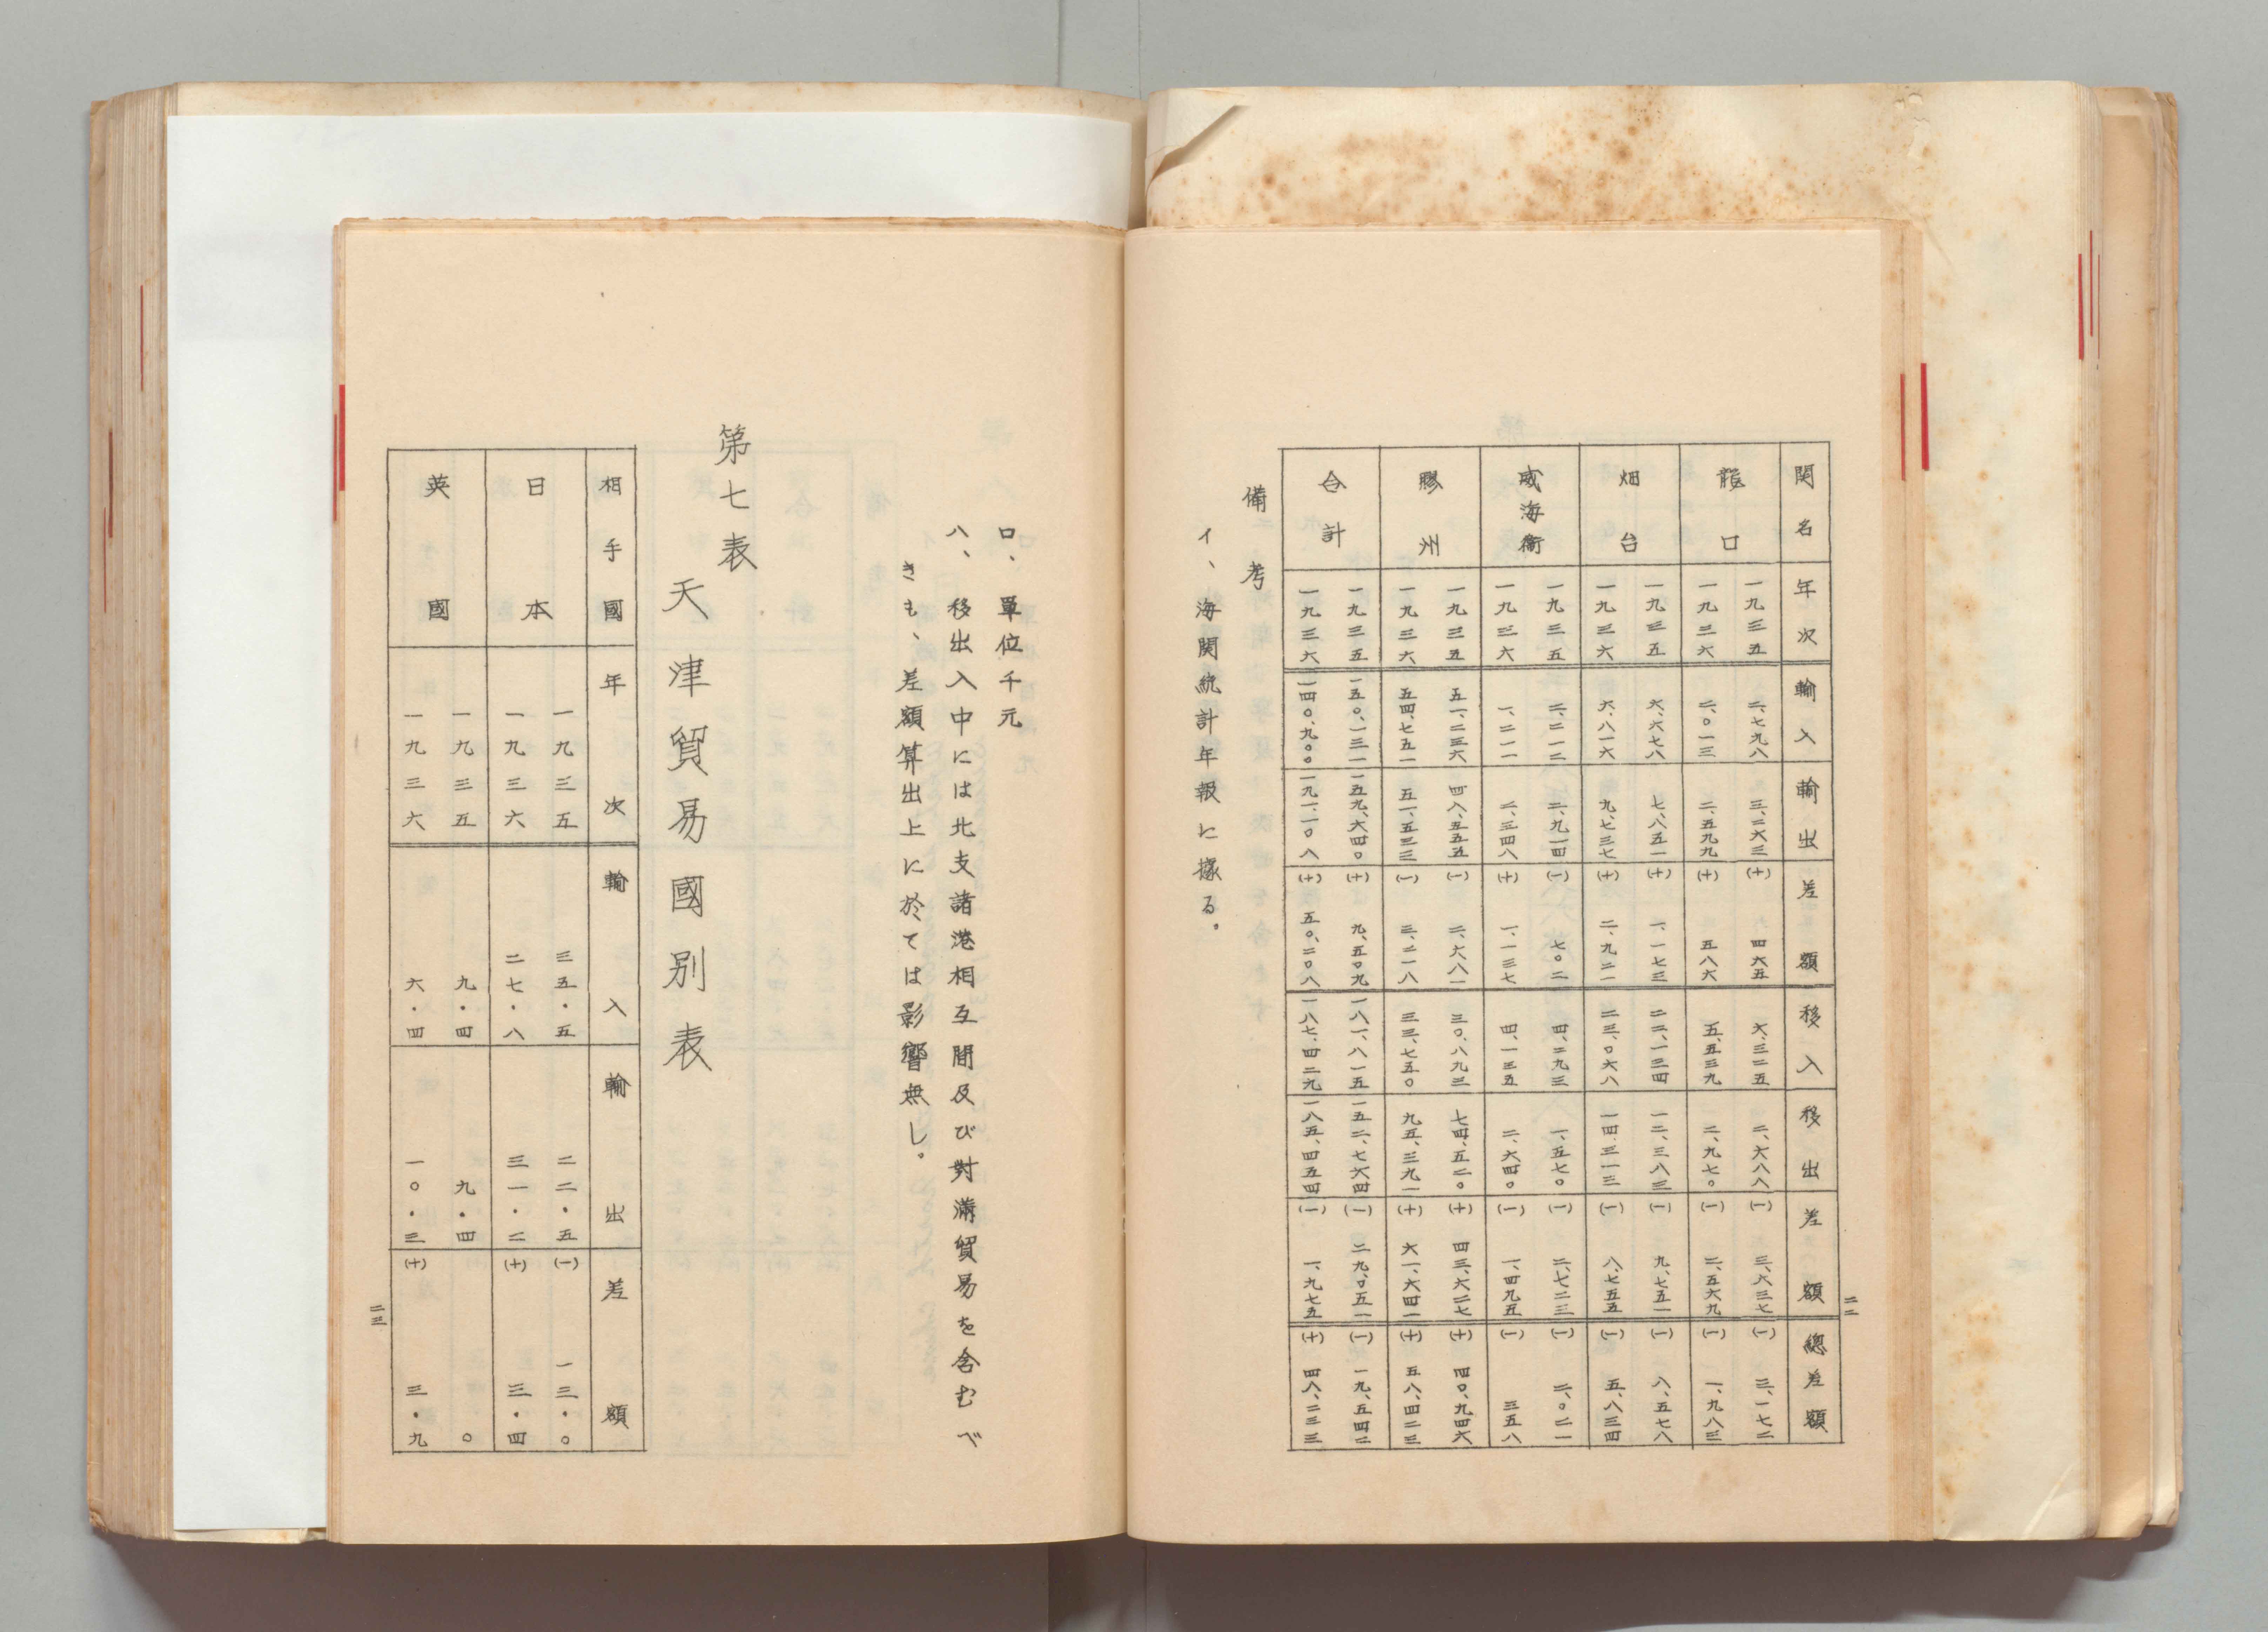 二二
関名 年次 輸入 輸出 差額 移入 移出 差額 總差額
龍口 一九三五 二、七九八 三、二六三 (+) 四六五 六、三二五 二、六八八 (一) 三、六三七 (一) 三、一七二
一九三六 二、〇一三 二、五九九 (+) 五八六 五、五三九 二、九七〇 (一) 二、五六九 (一) 一、九八三
畑台 一九三五 六、六七八 七、八五一 (+) 一、一七三 二二、一三四 一二、三八三 (一) 九、七五一 (一) 八、五七八
一九三六 六、八一六 九、七三七 (+) 二、九二一 二三、〇六八 一四、三一三 (一) 八、七五五 (一) 五、八三四
威海衛 一九三五 二、二一二 二、九一四 (一) 七〇二 四、二九三 一、五七〇 (一) 二、七二三 (一) 二、〇二一
一九三六 一、二一一 二、三四八 (+) 一、一三七 四、一三五 二、六四〇 (一) 一、四九五 (一) 三五八
膠州 一九三五 五一、二三六 四八、五五五 (一) 二、六八一 三〇、八九三 七四、五二〇 (+) 四三、六二七 (+) 四〇、九四六
一九三六 五四、七五一 五一、五三三 (一) 三、二一八 三三、七五〇 九五、三九一 (+) 六一、六四一 (+) 五八、四二三
合計 一九三五 一五〇、一三一 一五九、六四〇 (+) 九、五〇九 一八一、八一五 一五二、七六四 (一) 二九、〇五一 (一) 一九、五四二
一九三六 一四〇、九〇〇 一九一、一〇八 (+) 五〇、二〇八 一八七、四二九 一八五、四五四 (一) 一、九七五 (+) 四八、二三三
備考
イ、海関統計年報に據る。
ロ、單位千元
ハ、移出入中には北支諸港相互間及び對滿貿易を含むべ
きも、差額算出上に於ては影響無し。
第七表
天津貿易國別表
相手國 年次 輸入 輸出 差額
日本 一九三五 三五・五 二二・五 (一) 一三・〇
一九三六 二七・八 三一・二 (+) 三・四
英國 一九三五 九・四 九・四 〇
一九三六 六・四 一〇・三 (+) 三・九
二三